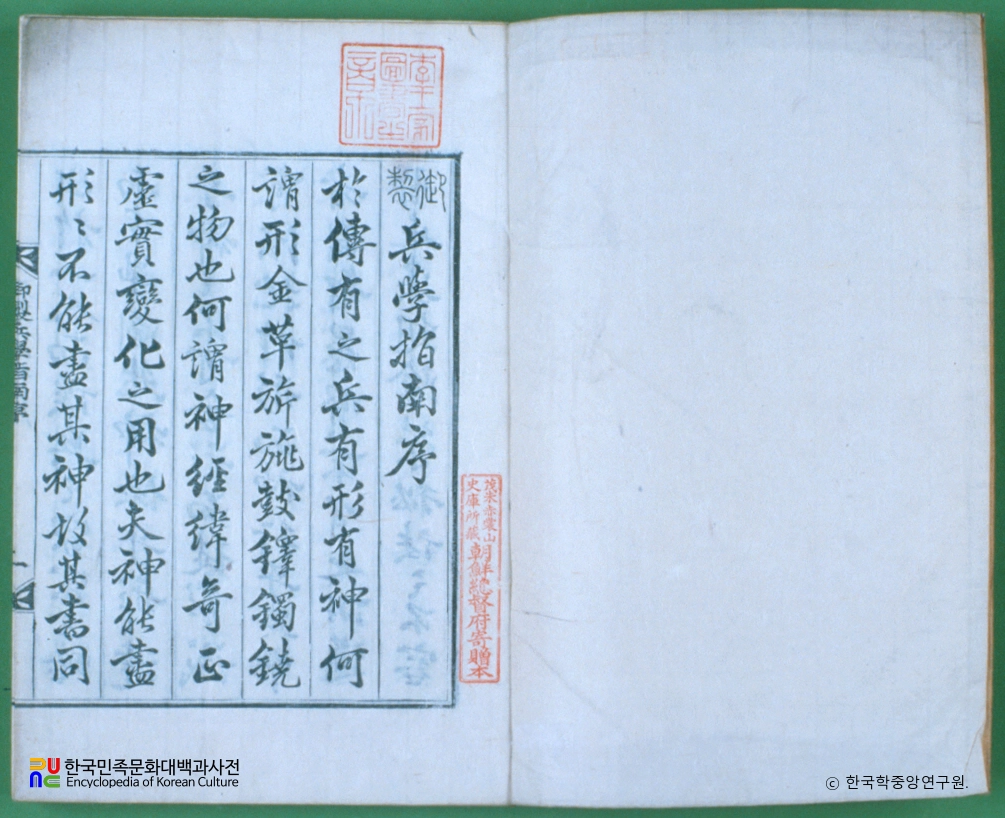 御製兵學指南序
於傳有之兵有形有神何
謂形金革旂旐鼓鐸鐲鐃
之物也何謂神經緯奇正
虛實變化之用也夫神能盡
形〻不能盡其神故其書同
御製兵學指南序
一
李王家
圖書
之章
茂朱赤裳山
史庫所藏
朝鮮總督府寄贈本
한국민족문화대백과사전
Encyclopedia of Korean Culture
ⓒ 한국학중앙연구원.